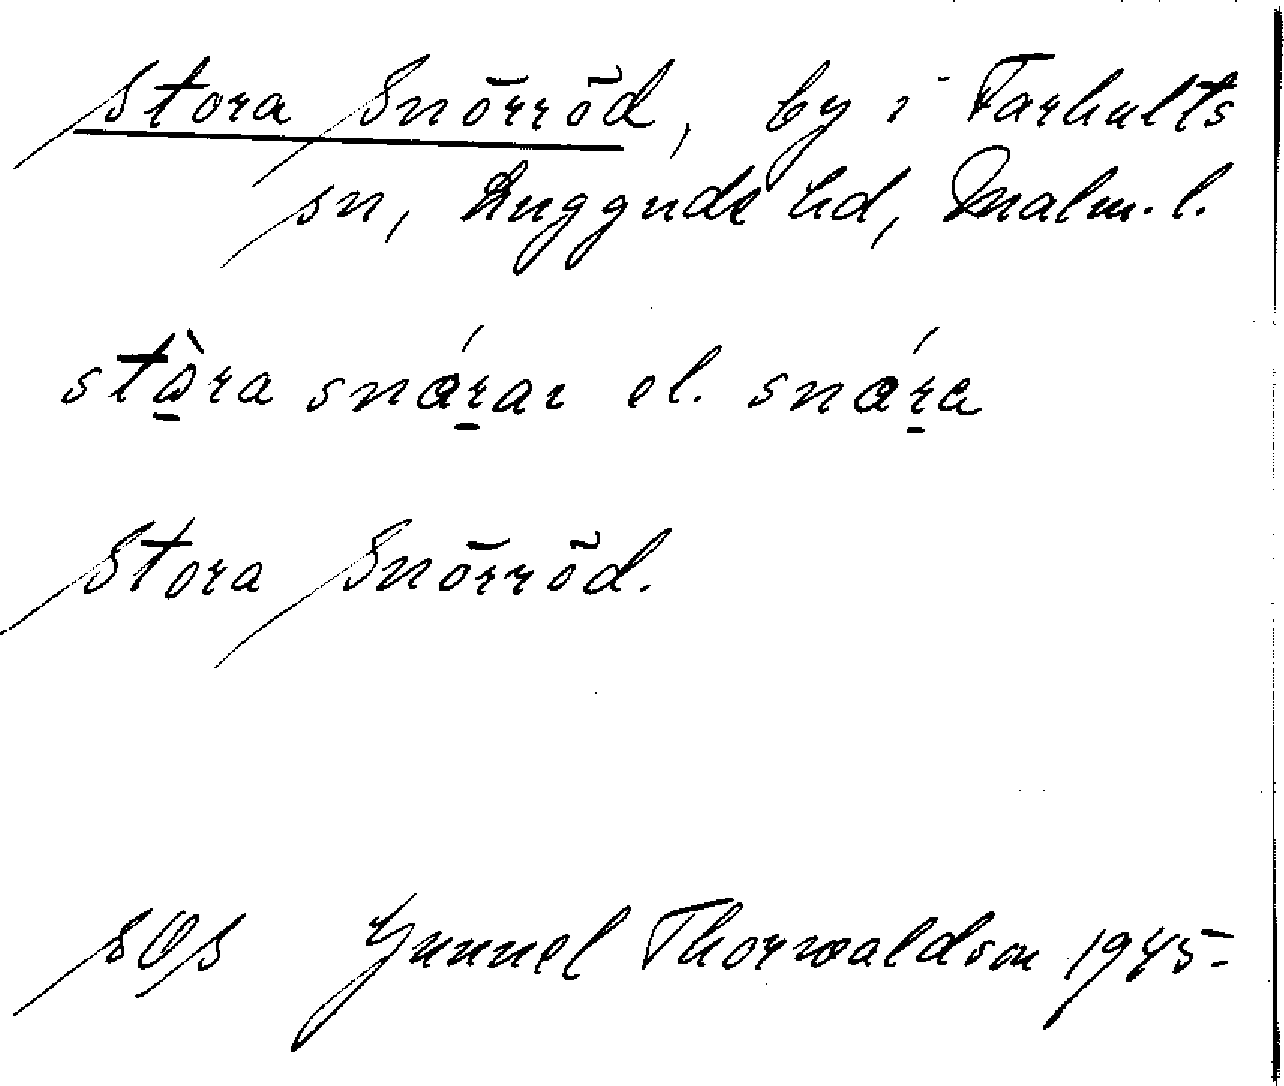 Stora Snörröd, by i Farhults
sn, Luggude hd, Malm. l.
stò̱ra snáṟar el. snáṟa
Stora Snörröd.
SOS Gunnel Thorwaldson 1945-